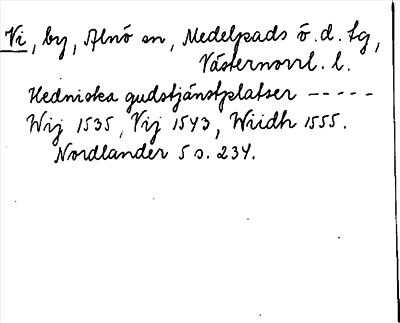 Vi, by, Alnö sn, Medelpads ö. d. tg,
Västernorrl. l.
Hedniska gudstjänstplatser -----
Wij 1535, Vij 1543, Wiidh 1555.
Nordlander 5 s. 234.